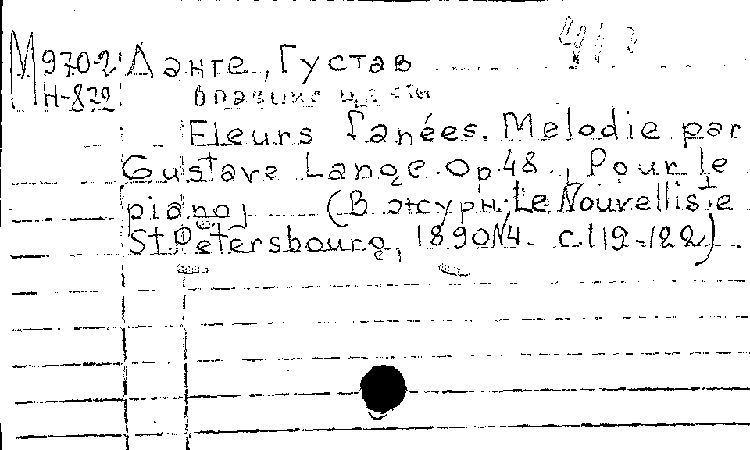 М 970-2 Ланге, Густав
Н-872
Fleurs fanées. Melodie par
Gustave Lange. Op. 48., Pour le
piano, (В журн. Le Nouvelliste
St. Pétersbourg, 1890 N4. С. 119-122).